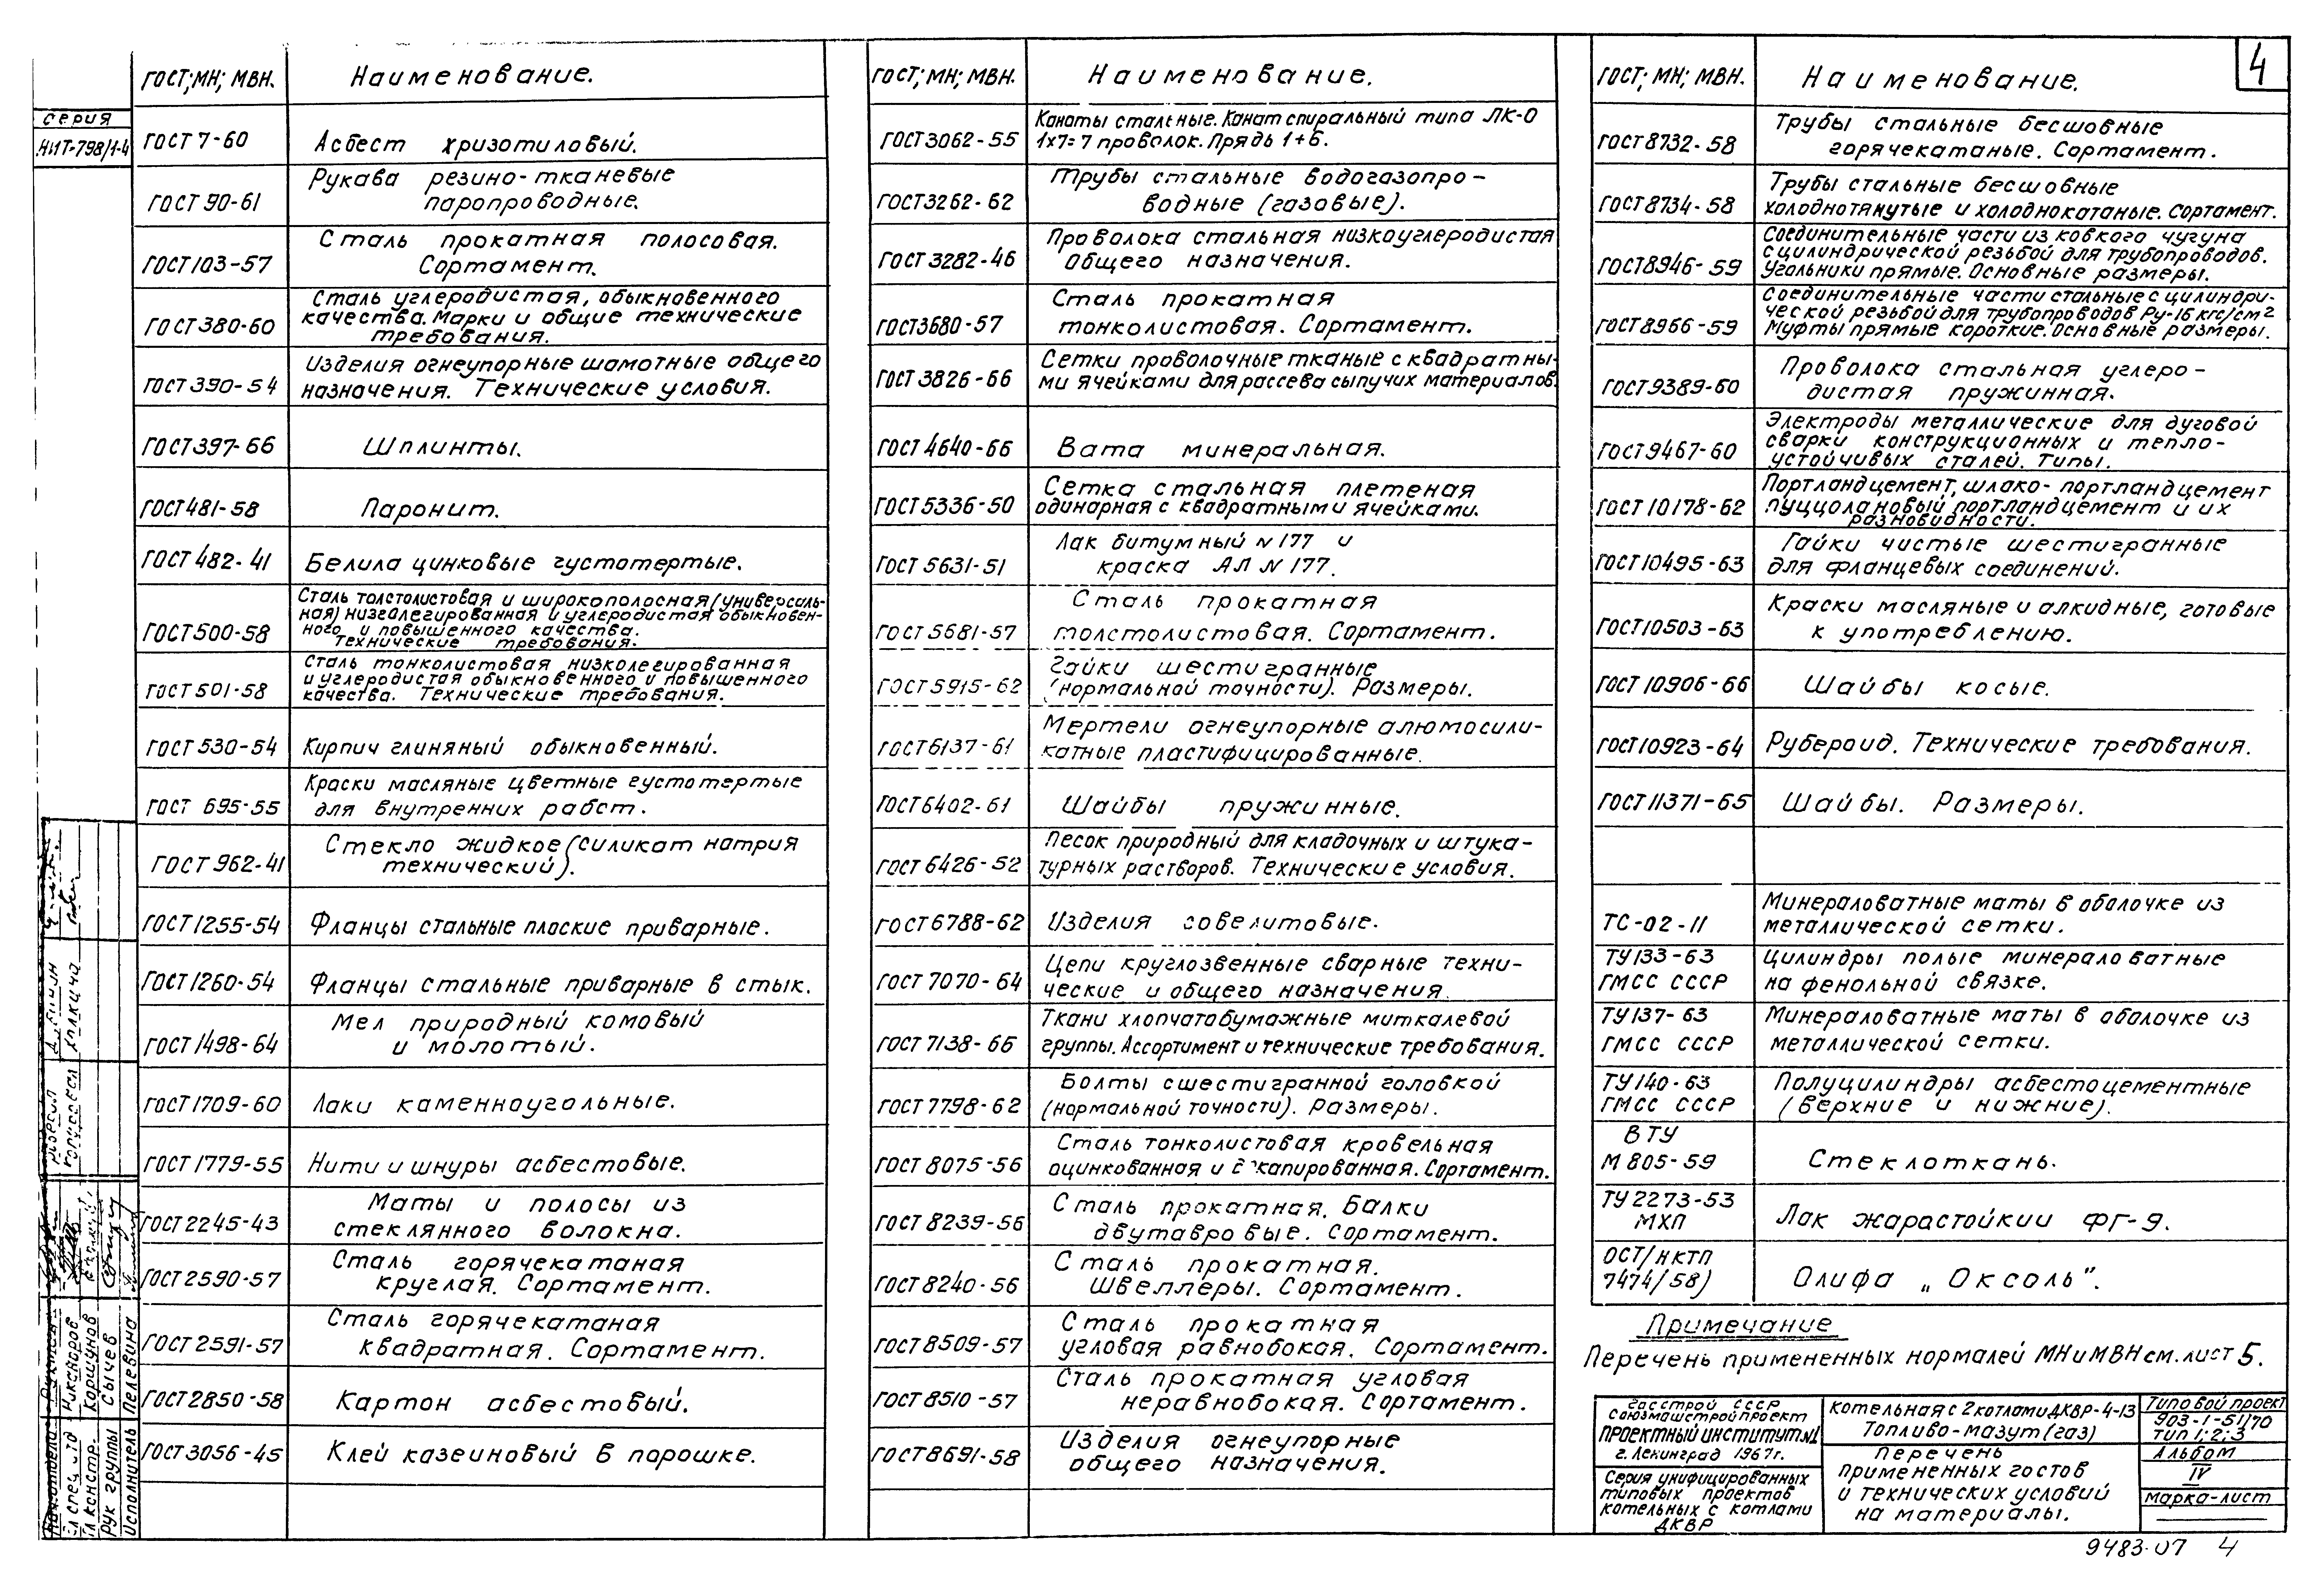 4
серия
НИТ-798/1-4
ГОСТ; МН; МВН. Наименование.
ГОСТ 7-60 Асбест хризотиловый.
ГОСТ 90-61 Рукава резино-тканевые
паропроводные.
ГОСТ 103-57 Сталь прокатная полосовая.
Сортамент.
ГОСТ 380-60 Сталь углеродистая, обыкновенного
качества. Марки и общие технические
требования.
ГОСТ 390-54 Изделия огнеупорные шамотные общего
назначения. Технические условия.
ГОСТ 397-66 Шплинты.
ГОСТ 481-58 Паронит.
ГОСТ 482-41 Белила цинковые густотертые.
ГОСТ 500-58 Сталь толстолистовая и широкополосная (универсаль-
ная) низколегированная и углеродистая обыкновен-
ного и повышенного качества.
Технические требования.
ГОСТ 501-58 Сталь тонколистовая низколегированная
и углеродистая обыкновенного и повышенного
качества. Технические требования.
ГОСТ 530-54 Кирпич глиняный обыкновенный.
ГОСТ 695-55 Краски масляные цветные густотертые
для внутренних работ.
ГОСТ 962-41 Стекло жидкое (силикат натрия
технический).
ГОСТ 1255-54 Фланцы стальные плоские приварные.
ГОСТ 1260-54 Фланцы стальные приварные в стык.
ГОСТ 1498-64 Мел природный комовый
и молотый.
ГОСТ 1709-60 Лаки каменноугольные.
ГОСТ 1779-55 Нити и шнуры асбестовые.
ГОСТ 2245-43 Маты и полосы из
стеклянного волокна.
ГОСТ 2590-57 Сталь горячекатаная
круглая. Сортамент.
ГОСТ 2591-57 Сталь горячекатаная
квадратная. Сортамент.
ГОСТ 2850-58 Картон асбестовый.
ГОСТ 3056-45 Клей казеиновый в порошке.
ГОСТ; МН; МВН. Наименование.
ГОСТ 3062-55 Канаты стальные. Канат спиральный типа ЛК-О
1х7=7 проволок. Прядь 1+6.
ГОСТ 3262-62 Трубы стальные водогазопро-
водные (газовые).
ГОСТ 3282-46 Проволока стальная низкоуглеродистая
общего назначения.
ГОСТ 3680-57 Сталь прокатная
тонколистовая. Сортамент.
ГОСТ 3826-66 Сетки проволочные тканые с квадратны-
ми ячейками для рассева сыпучих материалов.
ГОСТ 4640-66 Вата минеральная.
ГОСТ 5336-50 Сетка стальная плетеная
одинарная с квадратными ячейками.
ГОСТ 5631-51 Лак битумный N 177 и
краска АЛ N 177.
ГОСТ 5681-57 Сталь прокатная
толстолистовая. Сортамент.
ГОСТ 5915-62 Гайки шестигранные
(нормальной точности). Размеры.
ГОСТ 6137-61 Мертели огнеупорные алюмосили-
катные пластифицированные.
ГОСТ 6402-61 Шайбы пружинные.
ГОСТ 6426-52 Песок природный для кладочных и штука-
турных растворов. Технические условия.
ГОСТ 6788-62 Изделия совелитовые.
ГОСТ 7070-64 Цепи круглозвенные сварные техни-
ческие и общего назначения.
ГОСТ 7138-66 Ткани хлопчатобумажные миткалевой
группы. Ассортимент и технические требования.
ГОСТ 7798-62 Болты с шестигранной головкой
(нормальной точности). Размеры.
ГОСТ 8075-56 Сталь тонколистовая кровельная
оцинкованная и декапированная. Сортамент.
ГОСТ 8239-56 Сталь прокатная. Балки
двутавровые. Сортамент.
ГОСТ 8240-56 Сталь прокатная.
Швеллеры. Сортамент.
ГОСТ 8509-57 Сталь прокатная
угловая равнобокая. Сортамент.
ГОСТ 8510-57 Сталь прокатная угловая
неравнобокая. Сортамент.
ГОСТ 8691-58 Изделия огнеупорные
общего назначения.
ГОСТ; МН; МВН. Наименование.
ГОСТ 8732-58 Трубы стальные бесшовные
горячекатаные. Сортамент.
ГОСТ 8734-58 Трубы стальные бесшовные
холоднотянутые и холоднокатаные. Сортамент.
ГОСТ 8946-59 Соединительные части из ковкого чугуна
с цилиндрической резьбой для трубопроводов.
Угольники прямые. Основные размеры.
ГОСТ 8966-59 Соединительные части стальные с цилиндри-
ческой резьбой для трубопроводов Ру-16 кгс/см2
Муфты прямые короткие. Основные размеры.
ГОСТ 9389-60 Проволока стальная углеро-
дистая пружинная.
ГОСТ 9467-60 Электроды металлические для дуговой
сварки конструкционных и тепло-
устойчивых сталей. Типы.
ГОСТ 10178-62 Портландцемент, шлако-портландцемент
пуццолановый портландцемент и их
разновидности.
ГОСТ 10495-63 Гайки чистые шестигранные
для фланцевых соединений.
ГОСТ 10503-63 Краски масляные и алкидные, готовые
к употреблению.
ГОСТ 10906-66 Шайбы косые.
ГОСТ 10923-64 Рубероид. Технические требования.
ГОСТ 11371-65 Шайбы. Размеры.
ТС-02-11 Минераловатные маты в оболочке из
металлической сетки.
ТУ 133-63 Цилиндры полые минераловатные
ГМСС СССР на фенольной связке.
ТУ 137-63 Минераловатные маты в оболочке из
ГМСС СССР металлической сетки.
ТУ 140-63 Полуцилиндры асбестоцементные
ГМСС СССР (верхние и нижние).
ВТУ
М 805-59 Стеклоткань.
ТУ 2273-53
МХП Лак жарастойкии ФГ-9.
ОСТ/НКТП
7474/58) Олифа „Оксоль".
Примечание
Перечень примененных нормалей МН и МВН см. лист 5.
Госстрой СССР
Союзмашстройпроект
Проектный институт №1
г. Ленинград 1967г.
Серия унифицированных
типовых проектов
котельных с котлами
ДКВР
Котельная с 2 котлами ДКВР-4-13
Топливо-мазут (газ)
Перечень
примененных гостов
и технических условий
на материалы.
Типовой проект
903-1-51/70
тип 1; 2; 3
Альбом
IV
Марка-лист
Никаноров
Гл. констр. Коршунов
Рук. группы Сычев
Исполнитель Пелевина
9483-07 4